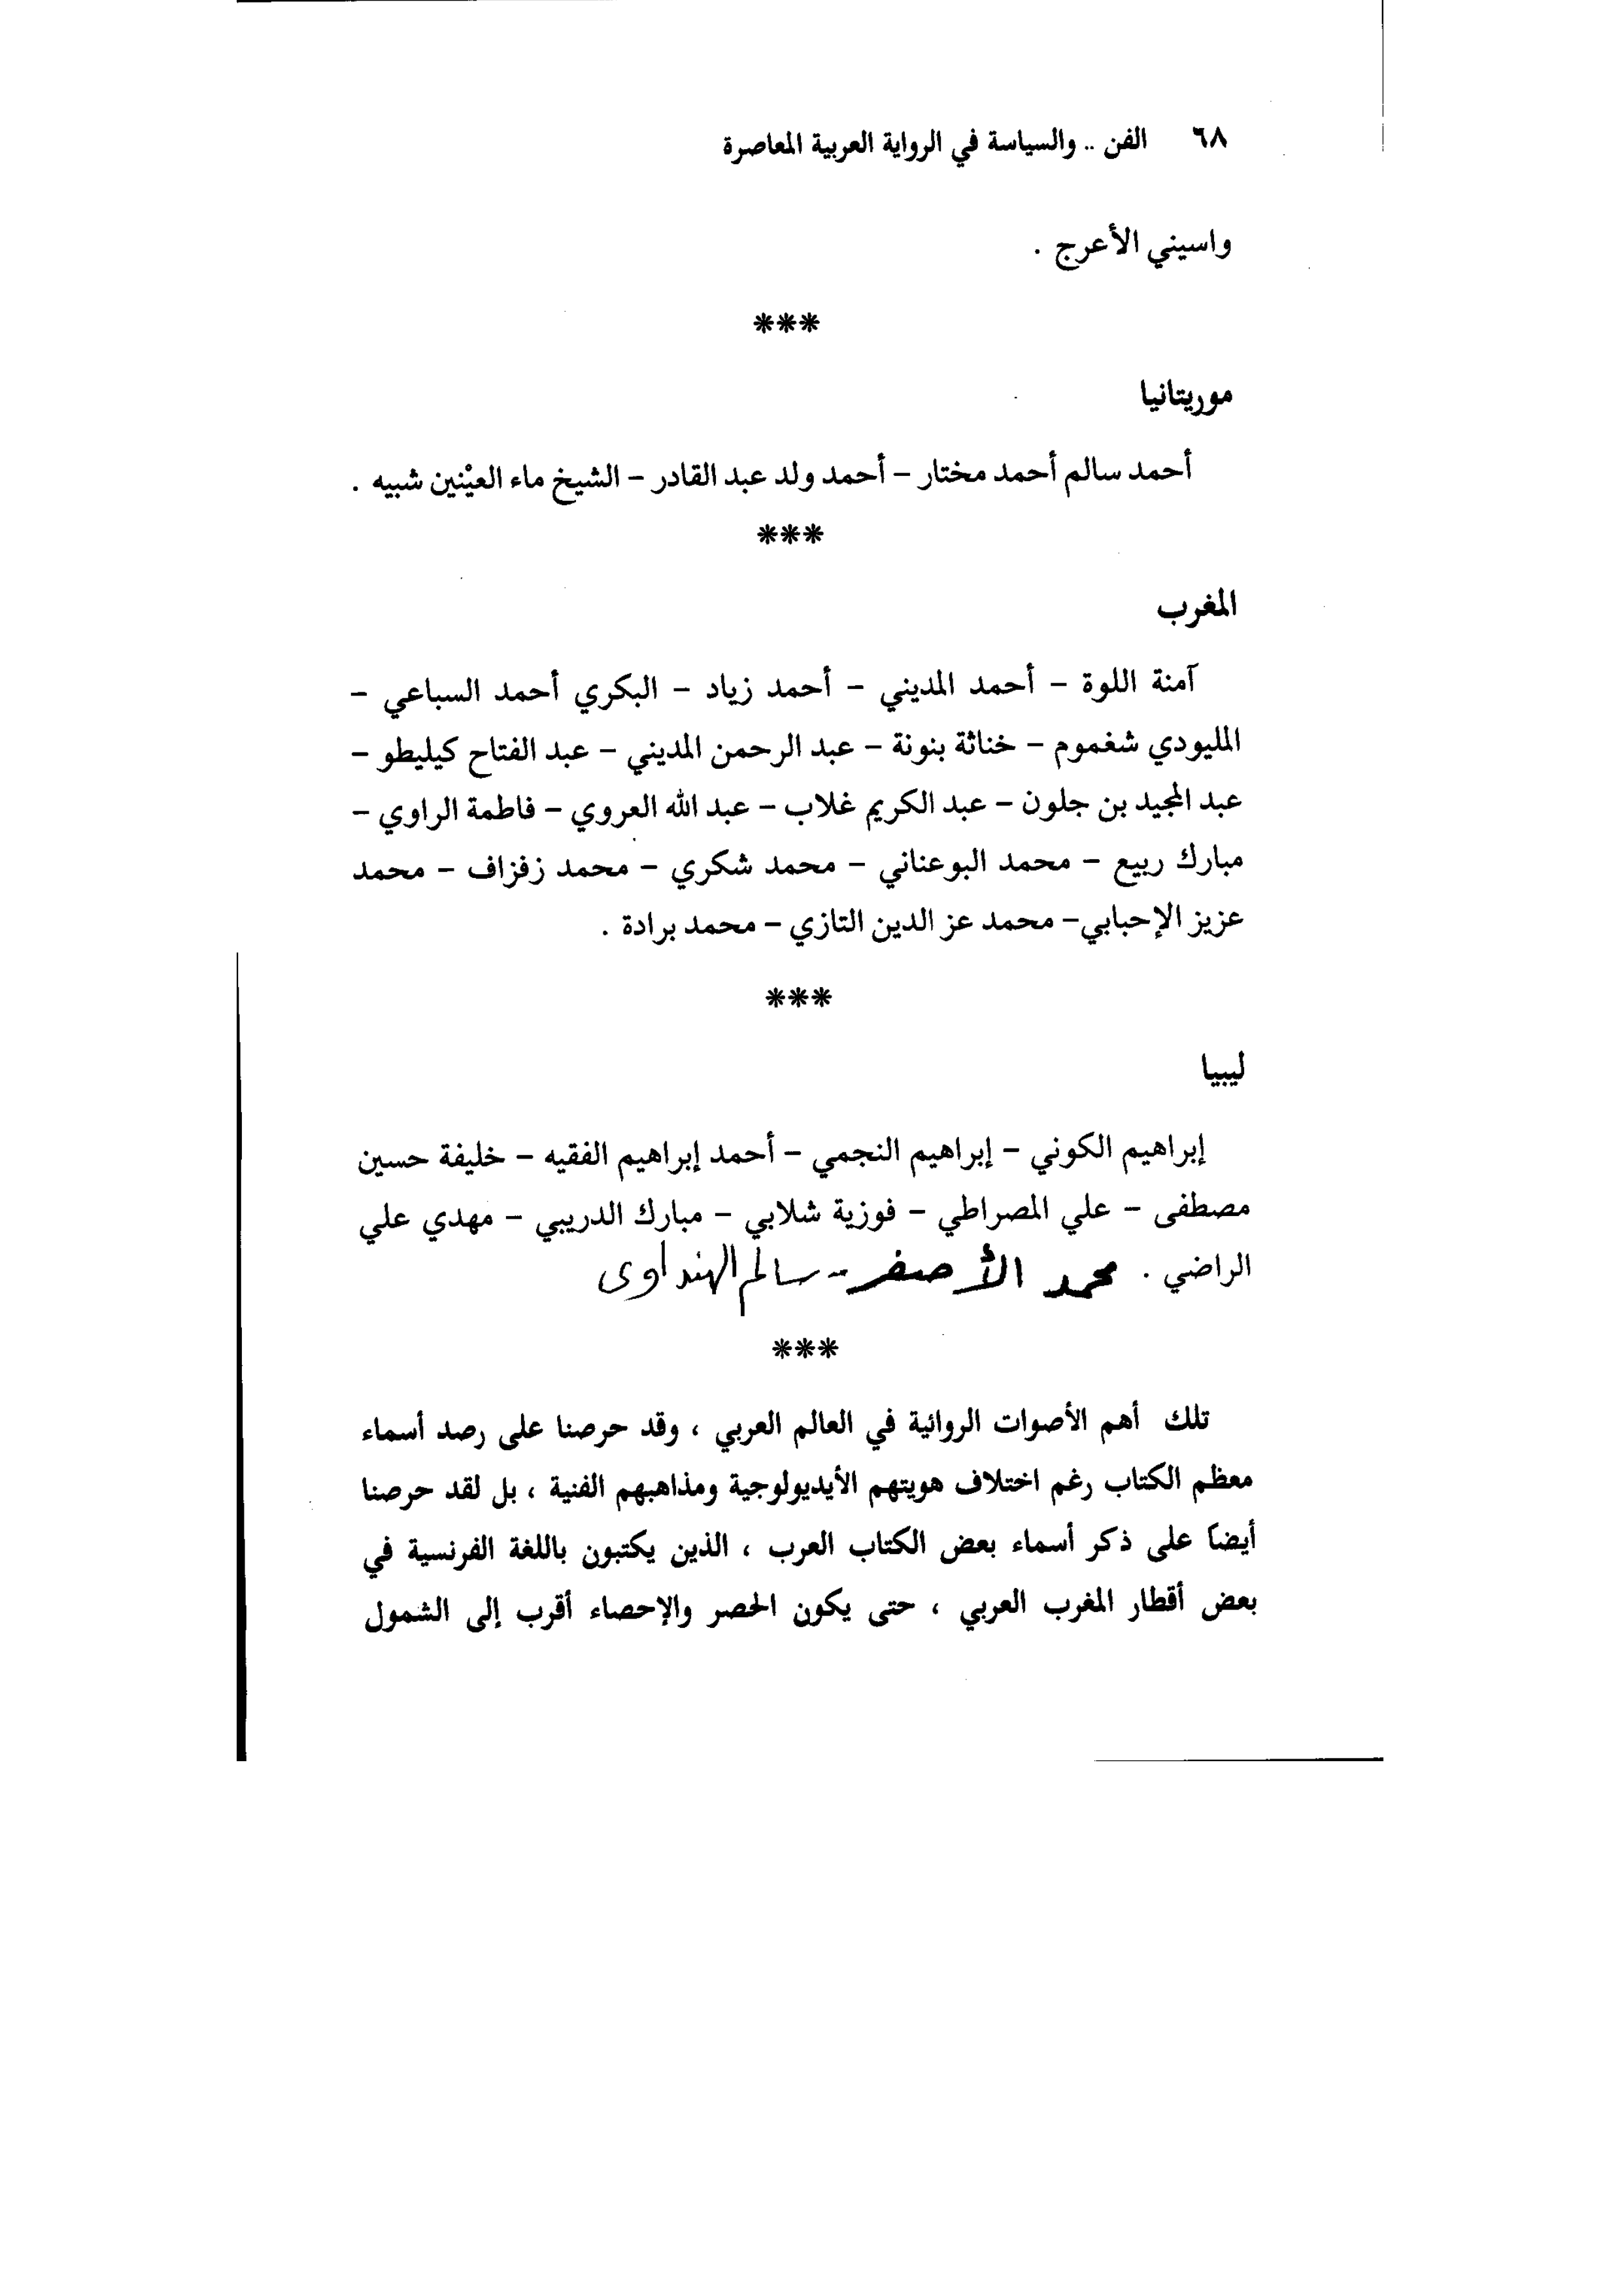 ٦٨ الفن .. والسياسة في الرواية العربية المعاصرة
واسيني الأعرج .
***
موريتانيا
أحمد سالم أحمد مختار – أحمد ولد عبد القادر – الشيخ ماء العيْنين شبيه .
***
المغرب
آمنة اللوة – أحمد المديني – أحمد زياد – البكري أحمد السباعي –
المليودي شغموم – خناثة بنونة – عبد الرحمن المديني – عبد الفتاح كيليطو –
عبد المجيد بن جلون – عبد الكريم غلاب – عبد الله العروي – فاطمة الراوي –
مبارك ربيع – محمد البوعناني – محمد شكري – محمد زفزاف – محمد
عزيز الإحبابي – محمد عز الدين التازي – محمد برادة .
***
ليبيا
إبراهيم الكوني – إبراهيم النجمي – أحمد إبراهيم الفقيه – خليفة حسين
مصطفى – علي المصراطي – فوزية شلابي – مبارك الدريبي – مهدي علي
الراضي . محمد الأصفر - سالم الهنداوى
***
تلك أهم الأصوات الروائية في العالم العربي ، وقد حرصنا على رصد أسماء
معظم الكتاب رغم اختلاف هويتهم الأيديولوجية ومذاهبهم الفنية ، بل لقد حرصنا
أيضاً على ذكر أسماء بعض الكتاب العرب ، الذين يكتبون باللغة الفرنسية في
بعض أقطار المغرب العربي ، حتى يكون الحصر والإحصاء أقرب إلى الشمول